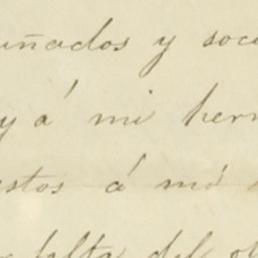 uñados y soc
y á mi her
estos á mó
falta del o